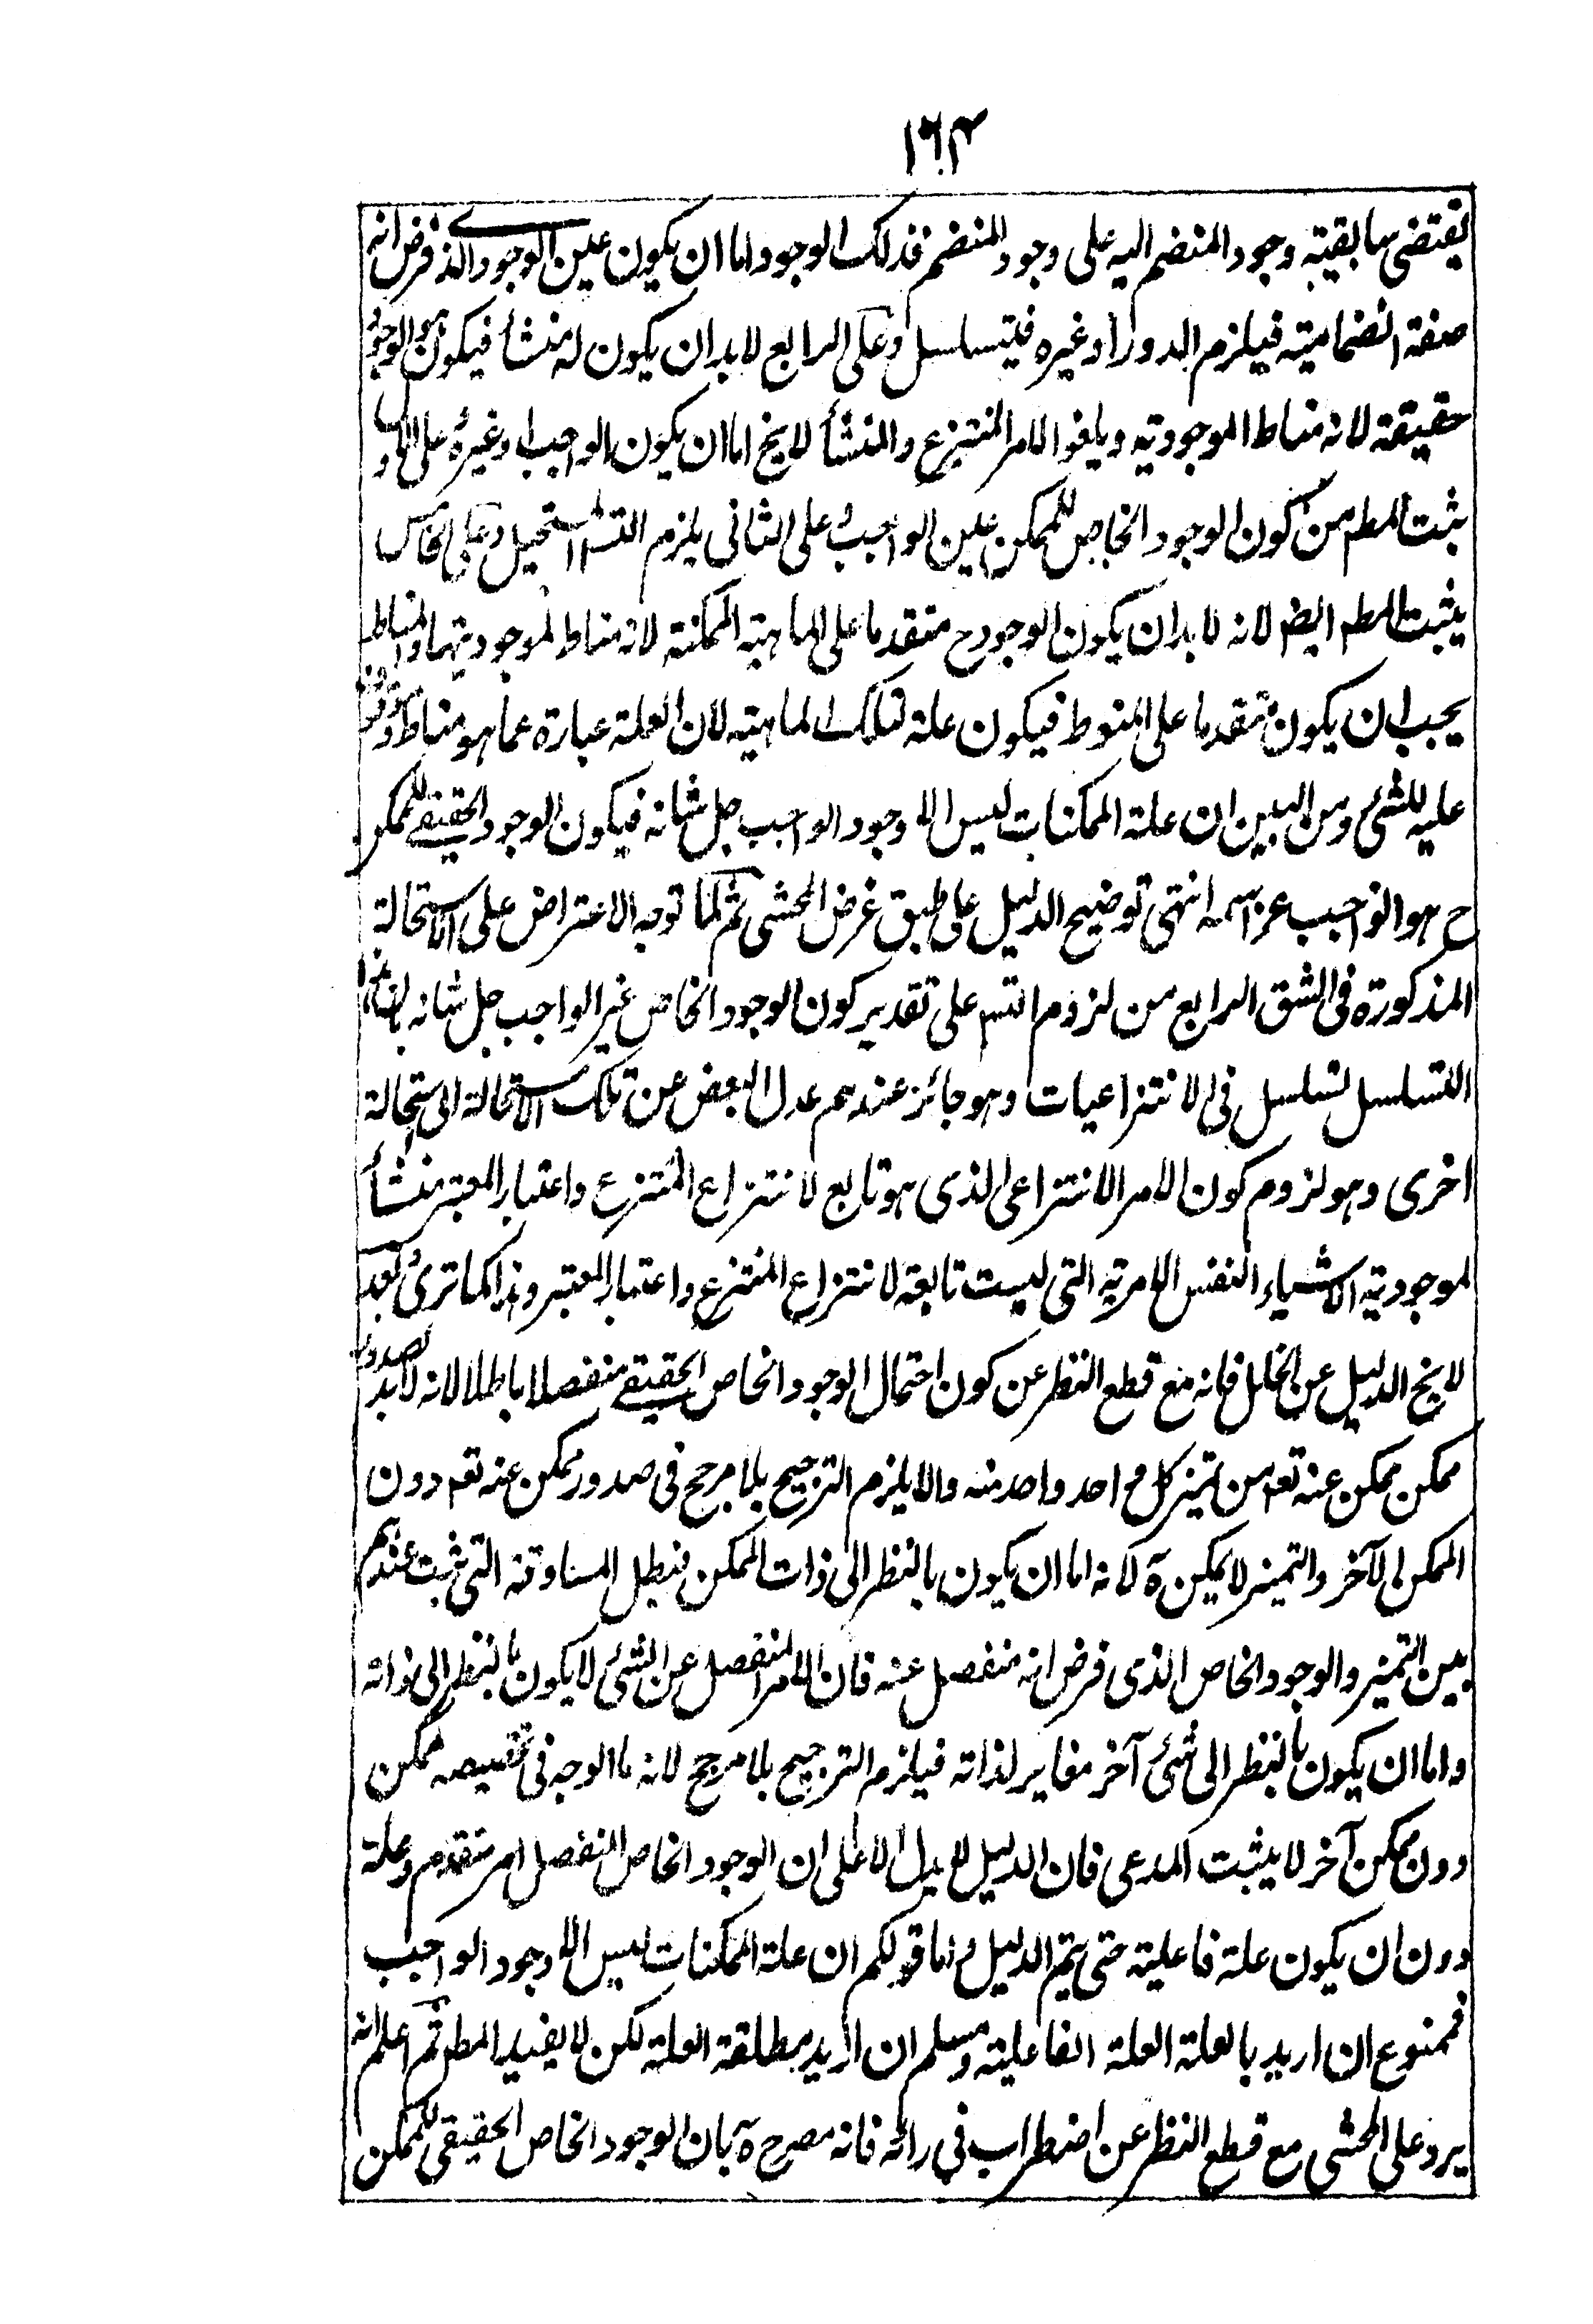 ١٦٤
يقتضى سابقية وجود المنضم اليه على وجود المنضم فذلك الوجود اما ان يكون عين الوجود الذى فرض انه
صفة انضمامية فيلزم الدور او غيره فيتسلسل وعلى الرابع لابد ان يكون له منشأ فيكون هو الوجود
حقيقة لانه مناط الموجودية ويلغو الامر المنتزع والمنشأ لايخ اما ان يكون الواجب او غيره على الاول
يثبت المطم من كون الوجود الخاص للممكن عين الواجب وعلى الثانى يلزم التسم المستحيل وعلى الخامس
يثبت المطم ايضم لانه لابد ان يكون الوجود ح متقدما على الماهية الممكنة لانه مناط لموجوديتها والمناط
يجب ان يكون متقدما على المنوط فيكون علة لتلك الماهية لان العلة عبارة عما هو مناط وموقوف
عليه للشئ ومن البين ان علة الممكنات ليس الا وجود الواجب جل شانه فيكون الوجود الحقيقى للممكن
ح هو الواجب عز اسمه انتهى توضيح الدليل على طبق غرض المحشى ثم لما توجه الاعتراض على الاستحالة
المذكورة فى الشق الرابع من لزوم التسم على تقدير كون الوجود الخاص غير الواجب جل شانه بان هذا
التسلسل تسلسل فى الانتزاعيات وهو جائز عندهم عدل البعض عن تلك الاستحالة الى استحالة
اخرى وهو لزوم كون الامر الانتزاعى الذى هو تابع لانتزاع المنتزع واعتبار المعتبر منشأ
لموجودية الاشياء النفس الامرية التى ليست تابعة لانتزاع المنتزع واعتبار المعتبر وهذا كما ترى وبعد
لايخ الدليل عن الخلل فانه مع قطع النظر عن كون احتمال الوجود الخاص الحقيقى منفصلا باطلا لانه لابد لصدور
ممكن ممكن عنه تعم من تميز كل واحد واحد منه والا يلزم الترجيح بلا مرجح فى صدور ممكن عنه تعم دون
الممكن الآخر والتميز لايمكن ة لانه اما ان يكون بالنظر الى ذات الممكن فبطل المساوقة التى ثبت عندهم
بين التميز والوجود الخاص الذى فرض انه منفصل عنه فان الامر المنفصل عن الشئ لايكون بالنظر الى ذاته
واما ان يكون بالنظر الى شئ آخر مغاير لذاته فيلزم الترجيح بلا مرجح لانه ما الوجه فى تخصيصه ممكن
دون ممكن آخر لايثبت المدعى فان الدليل لم يدل الا على ان الوجود الخاص المنفصل امر متقدم وعلة
دون ان يكون علة فاعلية حتى يتم الدليل واما قولكم ان علة الممكنات ليس الا وجود الواجب
فممنوع ان اريد بالعلة العلة الفاعلية ومسلم ان اريد مطلقة العلة لكن لا يفيد المطم ثم اعلم انه
يرد على المحشى مع قطع النظر عن اضطراب فى رائه فانه مصرح ة بان الوجود الخاص الحقيقى للممكن